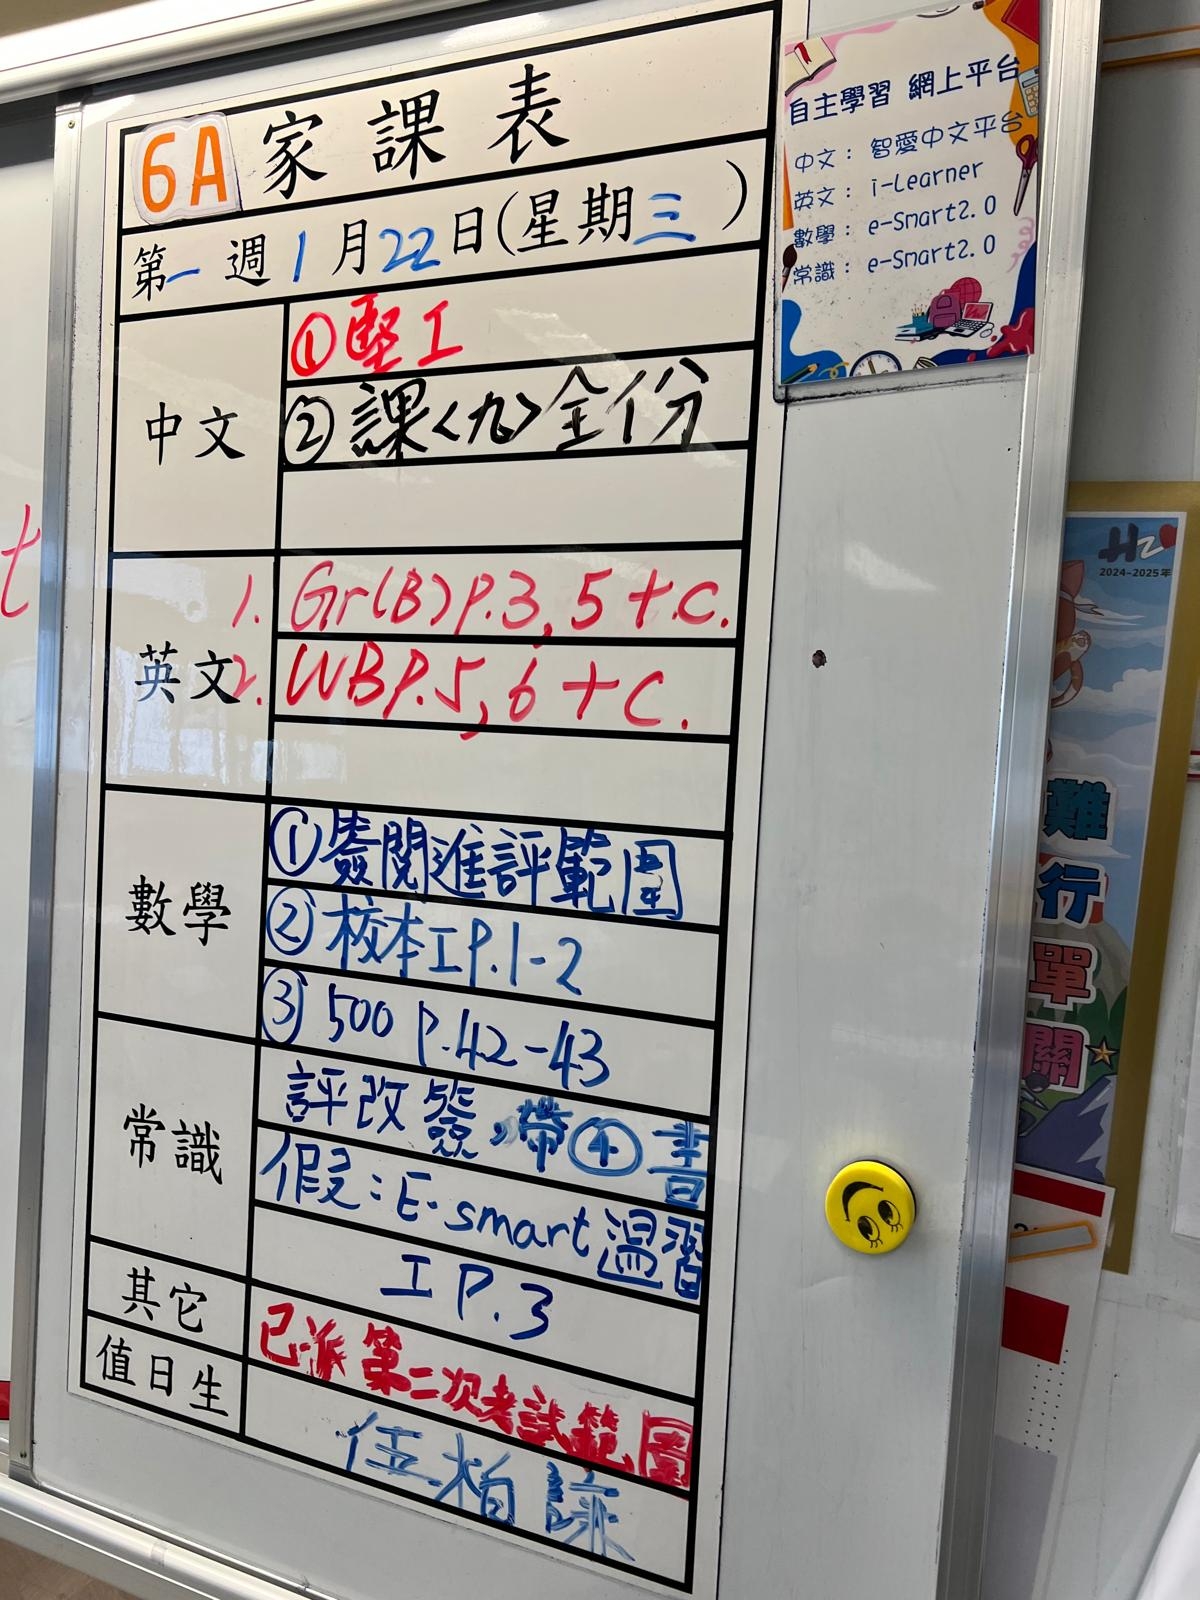 6A 家課表
第一週 1月22日(星期三)
中文
①堅工
②課<九>全份
英文
1. Gr(B) P.3, 5 + c.
2. WB P.5, 6 + c.
數學
①簽閱進評範圍
②校本工P.1-2
③500 P.42-43
常識
評改簽,帶④書
假：E-smart溫習
工P.3
其它
已派第二次考試範圍
值日生
伍柏
自主學習 網上平台
中文： 智愛中文平台
英文： i-Learner
數學： e-Smart2.0
常識： e-Smart2.0
2024-2025年
難
行
單
關
t